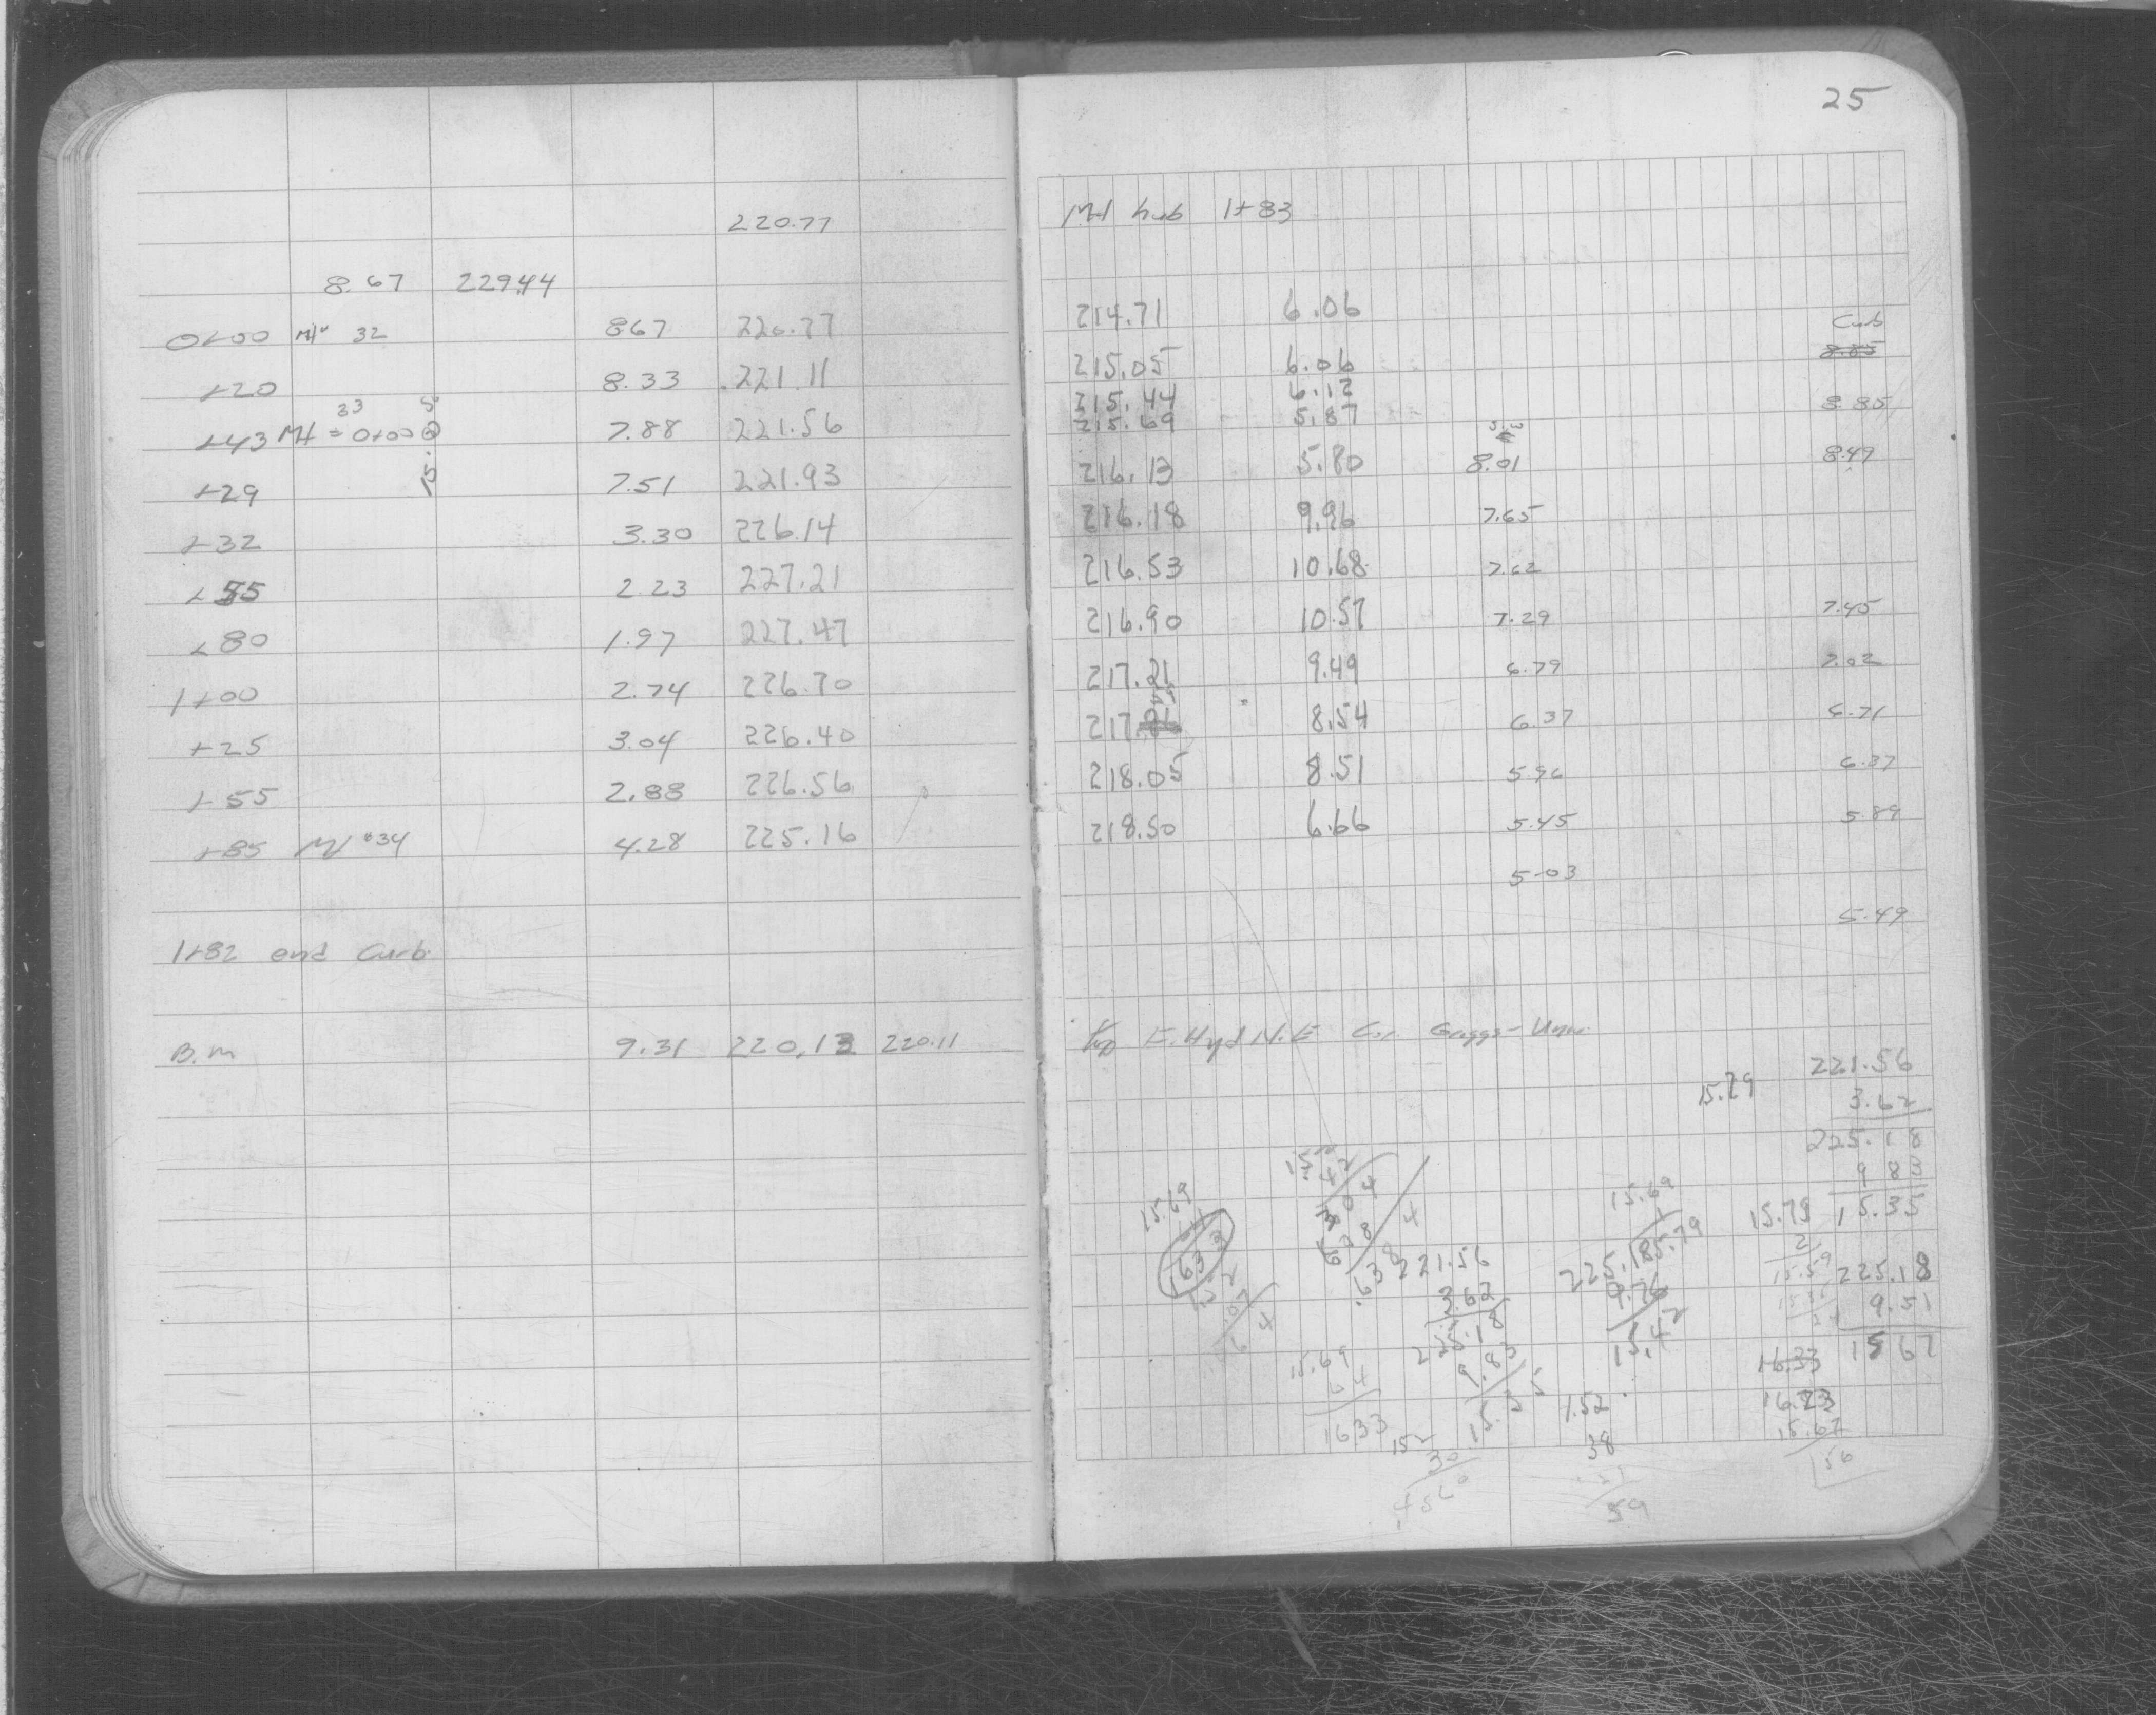 220.77
8.67 229.44
0+00 MH 32 8.67 220.77
+20 8.33 221.11
33
+43 MH = 0+00 7.88 221.56
+29 7.51 221.93
+32 3.30 226.14
+55 2.23 227.21
+80 1.97 227.47
1+00 2.74 226.70
+25 3.04 226.40
+55 2.88 226.56
+85 MH #34 4.28 225.16
1+82 end Curb
B.M 9.31 220.13 220.11
25
MH hub 1+83
214.71 6.06
Curb
215.05 6.06 8.85
215.44 6.12
215.69 5.87 8.85
216.13 5.80 8.01 8.49
216.18 9.96 7.65
216.53 10.68 7.62
216.90 10.57 7.29 7.45
217.21 9.49 6.79 7.02
217. 8.54 6.37 6.71
218.05 8.51 5.96 6.37
218.50 6.66 5.45 5.89
5.03
5.49
Top F. Hyd N.E Cor.
221.56
15.29 3.62
225.18
9 83
15.79 15.35
15.69
163
221.56
3.62
225.18
9.83
225.18
9.76
15.42
225.18
9.51
15 67
15.69
1633
16.33
1.52
38
59
16.23
15.67
56